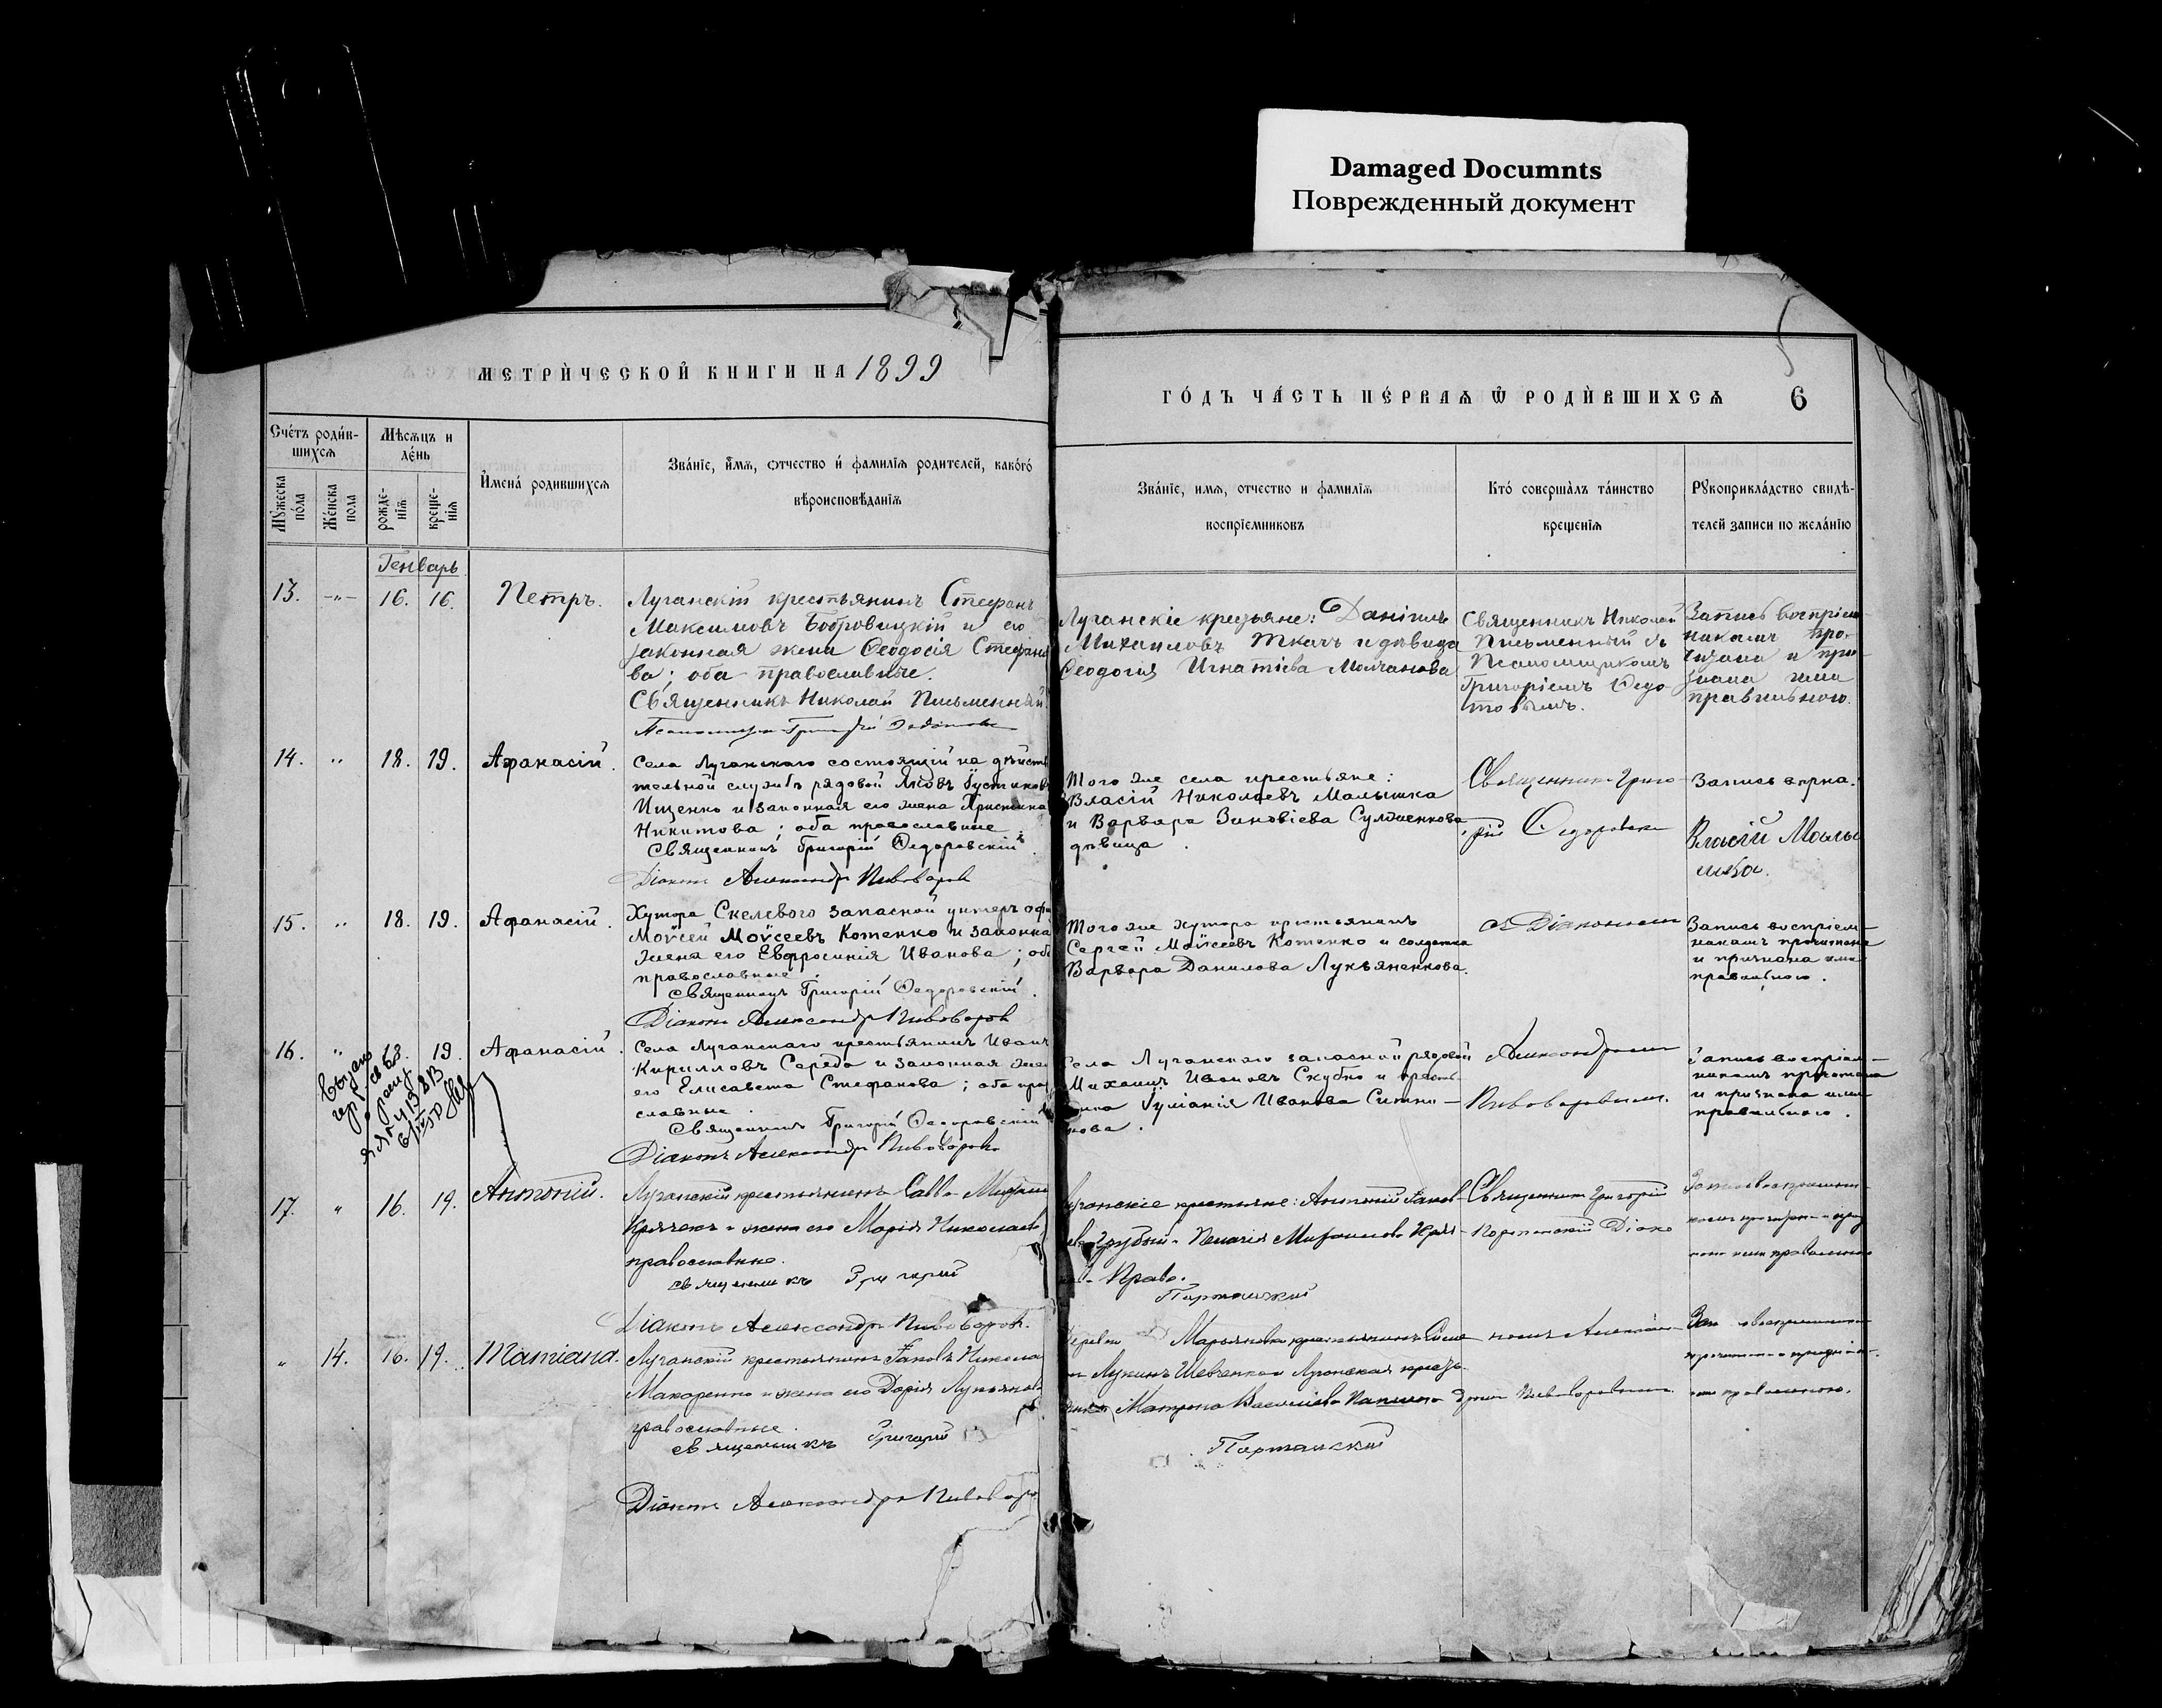 Damaged Documnts
Поврежденный документ
МЕТРИЧЕСКОЙ КНИГИ НА 1899
ГОДЪ ЧАСТЬ ПЕРВАЯ Ѡ РОДИВШИХСЯ 6
Счетъ родив-
шихся
Мужеска
пола
Женска
пола
Мѣсяцъ и
день
рожде-
нія
креще-
нія
Имена родившихся
Званіе, имя, отчество и фамилія родителей, какого
вѣроисповѣданія
Званіе, имя, отчество и фамилія
воспріемниковъ
Кто совершалъ таинство
крещенія
Рукоприкладство свидѣ-
телей записи по желанію
Генварь
13. -„- 16. 16. Петръ.
Луганскій крестьянинъ Стефанъ
Максимовъ Бобровицкій и его
законная жена Ѳеодосія Стефано
ва; оба православные.
Священникъ Николай Письменный.
Луганскіе крестьяне: Даніилъ
Михаиловъ Ткачъ и дѣвица
Ѳеодосія Игнатіева Молчанова
Священникъ Николай
Письменный съ
Псаломщикомъ
Григоріемъ Ѳедо-
товымъ.
Запись воспріем-
никамъ про-
читана и при-
знана ими
правильною.
14. „ 18. 19. Аѳанасій.
Села Луганскаго состоящій на дѣйств
тельной службѣ рядовой Яковъ Іустиновъ
Ищенко и законная его жена Христина
Никитова; оба православные.
Священникъ Григорій Ѳедоровскій.
Діаконъ Александръ Пивоваровъ
Того же села крестьяне:
Власій Николаевъ Малышка
и Варвара Зиновіева
дѣвица.
Священникъ Григо-
рій Ѳедоровскій
Запись вѣрна.
Власій Малы
шка.
15. „ 18. 19. Аѳанасій.
Хутора Скелевого запасной унтеръ офи
Моѵсей Моѵсеевъ Котенко и законна
жена его Евфросинія Иванова; оба
православные.
Священникъ Григорій Ѳедоровскій.
Діаконъ Александръ Пивоваровъ
Того же хутора крестьянинъ
Сергей Моѵсеевъ Котенко и солдатка
Варвара Данилова Лукьяненкова.
съ Діакономъ
Запись воспріем-
никамъ прочитана
и признана ими
правильною.
16. „ 18. 19. Аѳанасій.
Села Луганскаго крестьянинъ Иванъ
Кирилловъ Середа и законная жена
его Елисавета Стефанова; оба право
славные.
Священникъ Григорій Ѳедоровскій
Діаконъ Александръ Пивоваровъ
Села Луганскаго запасной рядовой
Михаилъ Ивановъ Скубко и кресть-
янка Іуліанія Иванова Ситни-
кова.
Александромъ
Пивоваровымъ.
Запись воспріем-
никамъ прочитана
и признана ими
правильною.
17. „ 16. 19. Антоній.
Луганскій крестьянинъ Савва
жена его Марія Николаев
православные.
священникъ Григорій
Діаконъ Александръ Пивоваровъ.
Луганскіе крестьяне: Антоній Яков-
Партанскій
Священникъ Григорій
Партанскій Діако
„ 14. 16. 19. Татіана.
Луганскій крестьянинъ Яковъ Никола
Макаренко и жена его Дарія Лукьянов
православные.
священникъ Григорій
Діаконъ Александръ Пивоваро
Деревни Марьяновки крестьянинъ
Лукинъ Шевченко и Луганская кресть-
Матрона Василіева
Партанскій
номъ Алексан-
дромъ Пивоваровымъ.